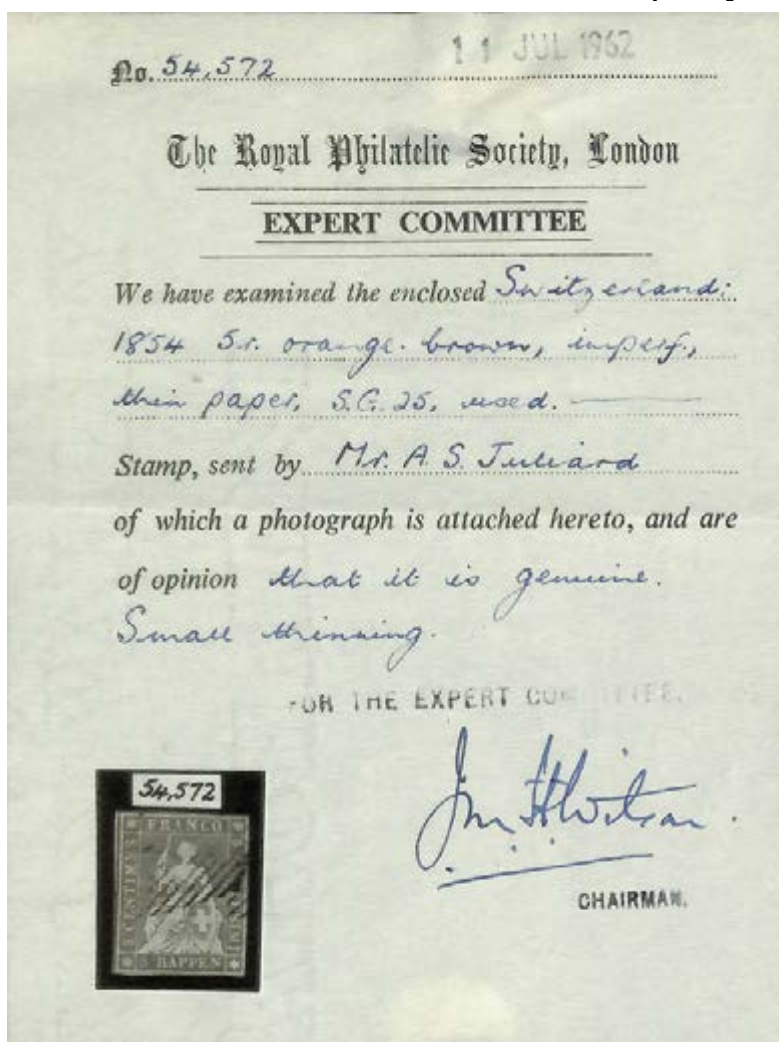 11 JUL 1962
No. 54,572
The Royal Philatelic Society, London
EXPERT COMMITTEE
We have examined the enclosed Switzerland:
1854 5r. orange-brown, imperf.,
thin paper, S.G. 25, used.
Stamp, sent by Mr. A. S. Juliard
of which a photograph is attached hereto, and are
of opinion that it is genuine.
Small thinning.
FOR THE EXPERT COMMITTEE.
54,572
FRANCO
5 CENTIMES
5 RAPPEN
CHAIRMAN.